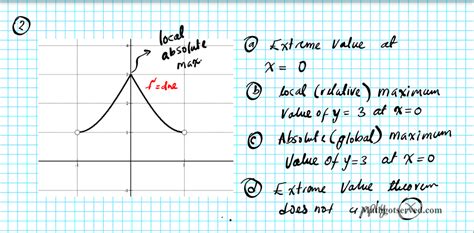 ②
local
absolute
max
f'=dne
ⓐ Extreme Value at
x = 0
ⓑ local (relative) maximum
Value of y = 3 at x=0
ⓒ Absolute (global) maximum
Value of y=3 at x=0
ⓓ Extreme Value theorem
does not apply